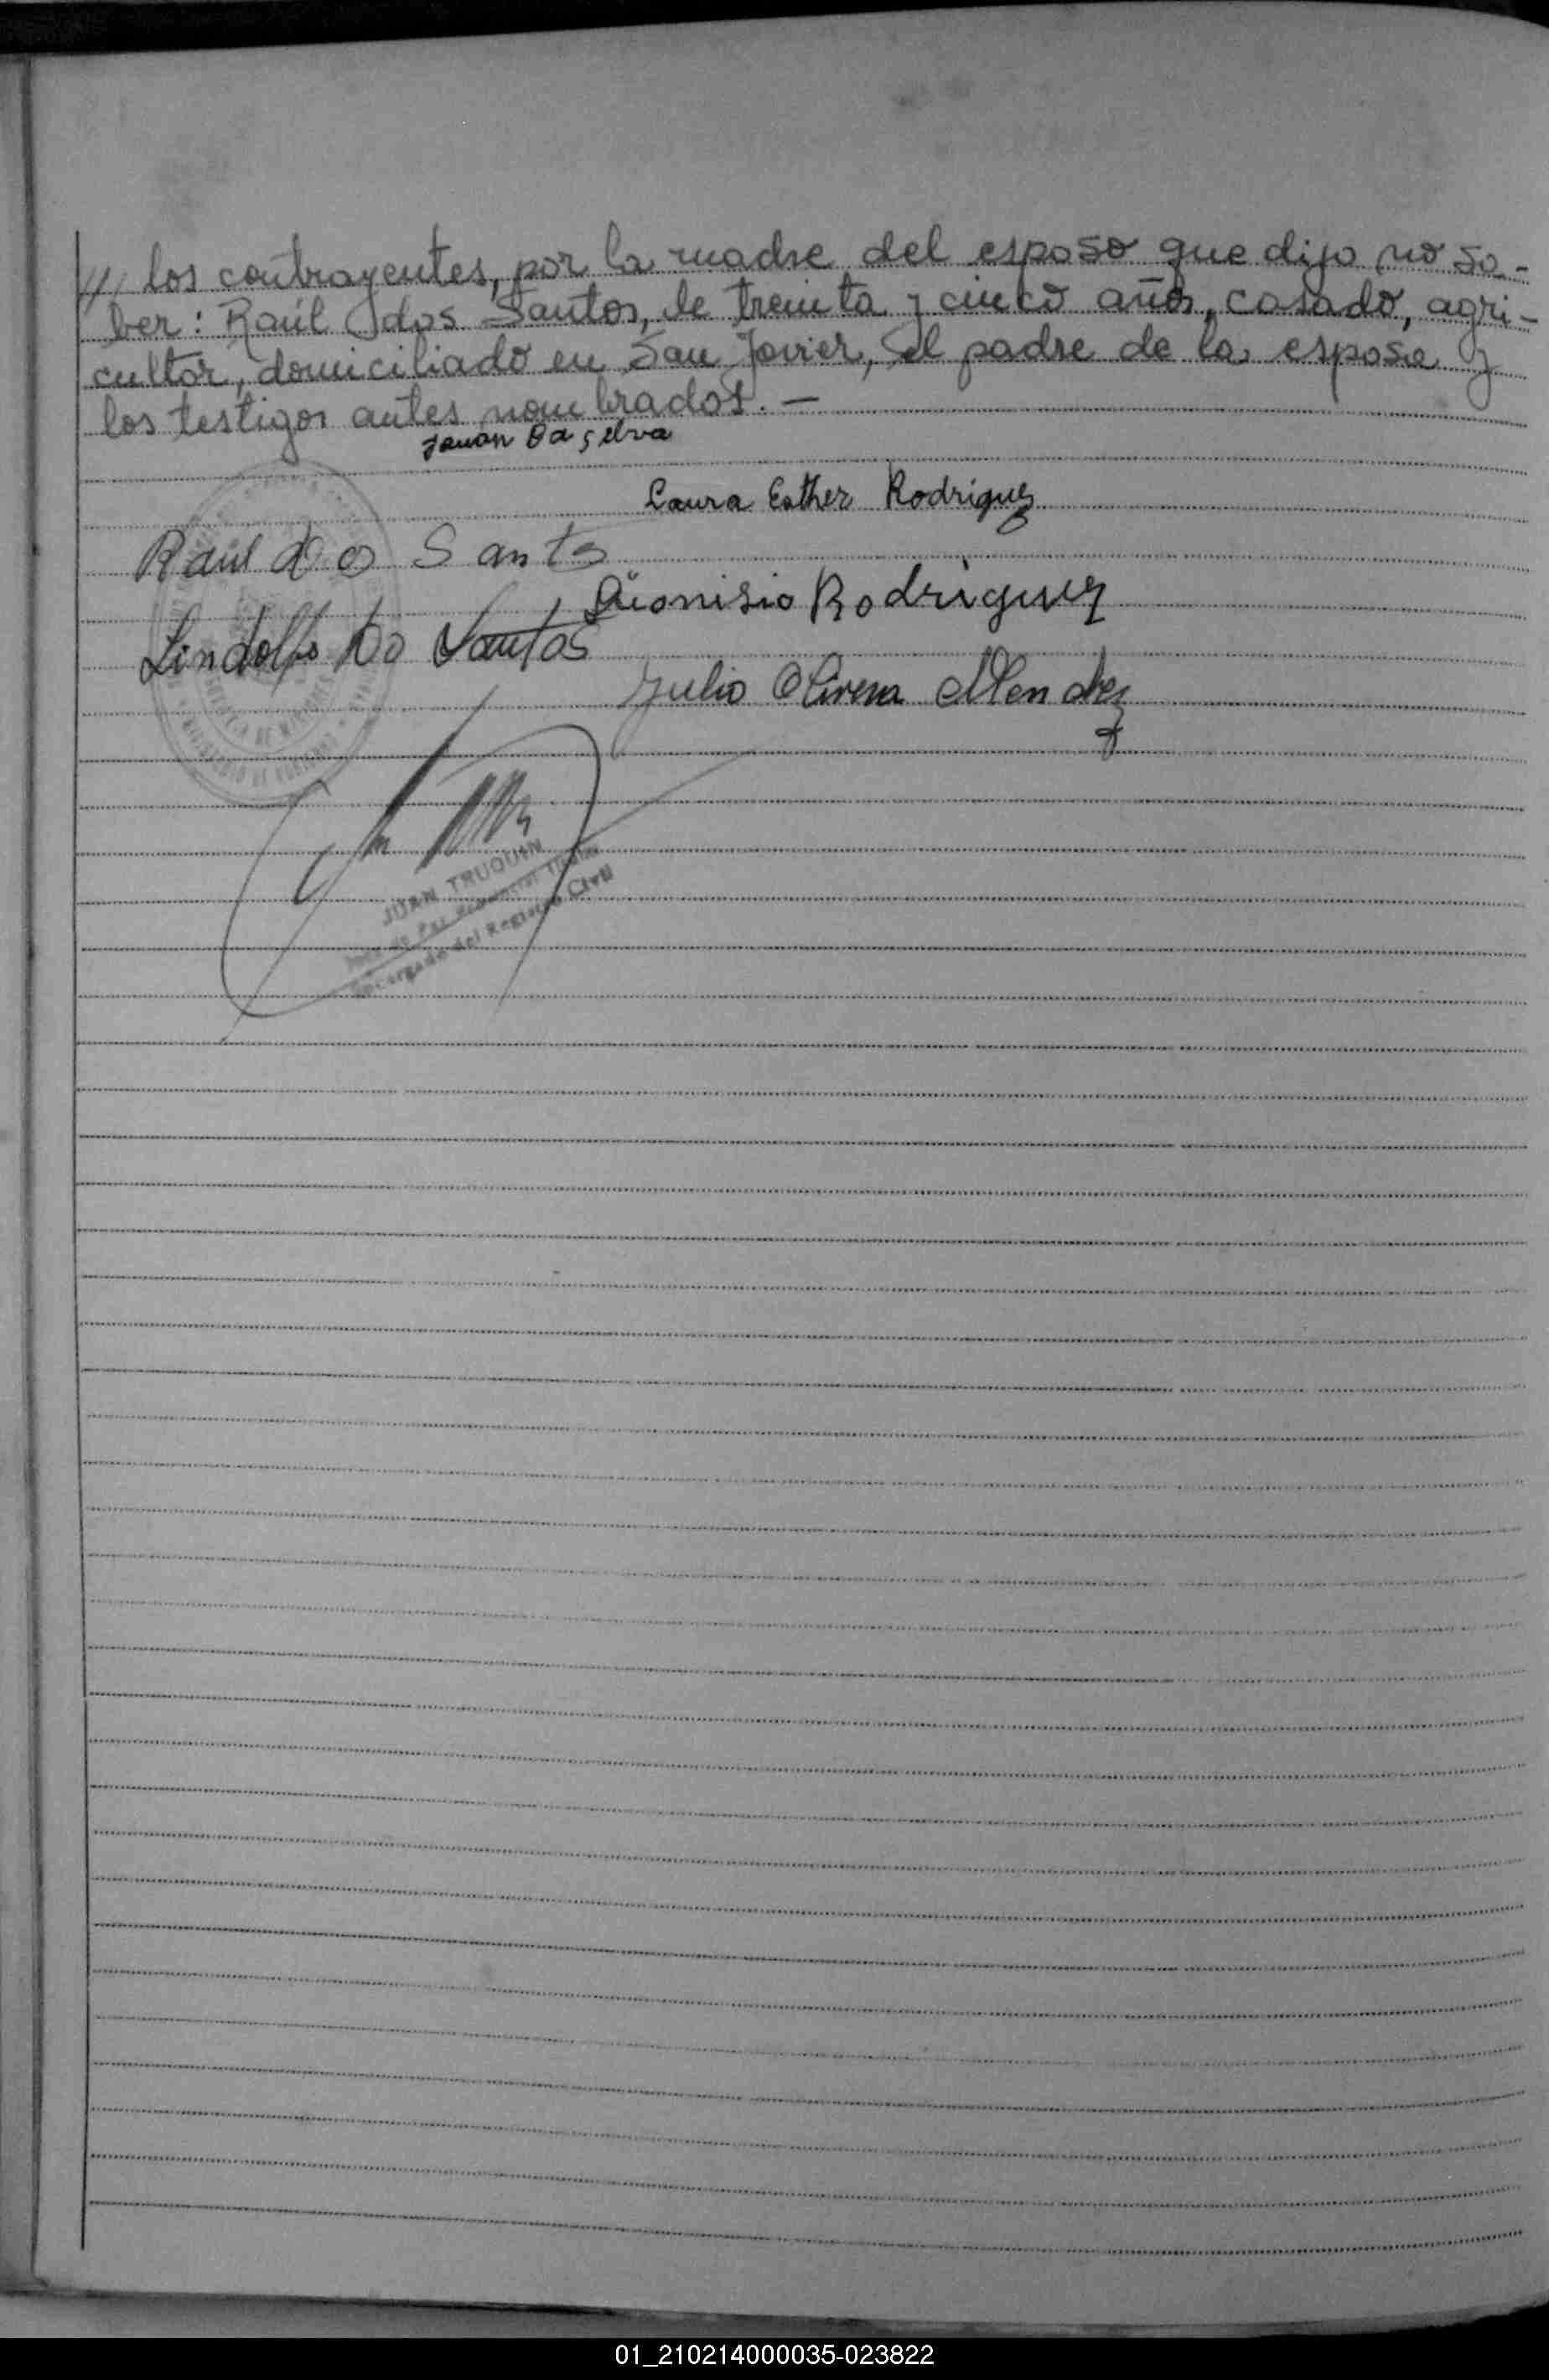 // los contrayentes, por la madre del esposo que dijo no sa-
ber: Raúl dos Santos, de treinta y cinco años, casado, agri-
cultor, domiciliado en San Javier, el padre de la esposa y
los testigos antes nombrados. —
Da Selva
Laura Esther Rodriguez
Raul dos Santos
Dionisio Rodriguez
Lindolfo Do Santos
Julio Olivera Mendez
JUAN TRUQUIN
Juez de Paz Titular
Encargado del Registro Civil
01_210214000035-023822